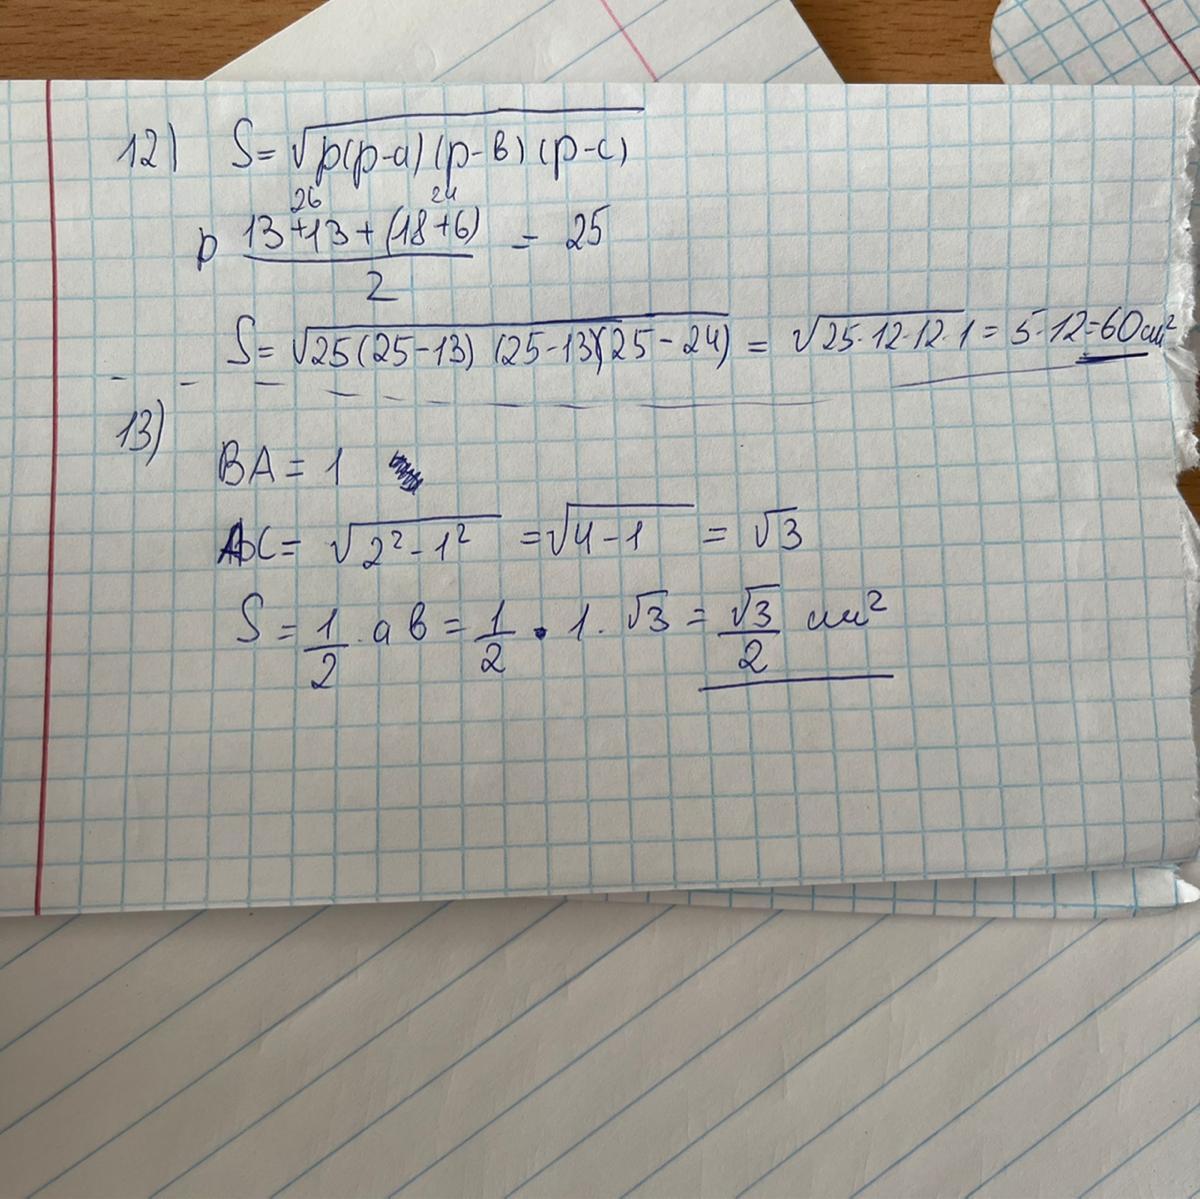 12) S = √p(p-a)(p-в)(p-c)
26 24
p 13+13+(18+6) / 2 = 25
S = √25(25-13)(25-13)(25-24) = √25·12·12·1 = 5·12=60см²
13)
BA = 1
AC = √2²-1² = √4-1 = √3
S = 1/2 · a в = 1/2 · 1 · √3 = √3/2 см²